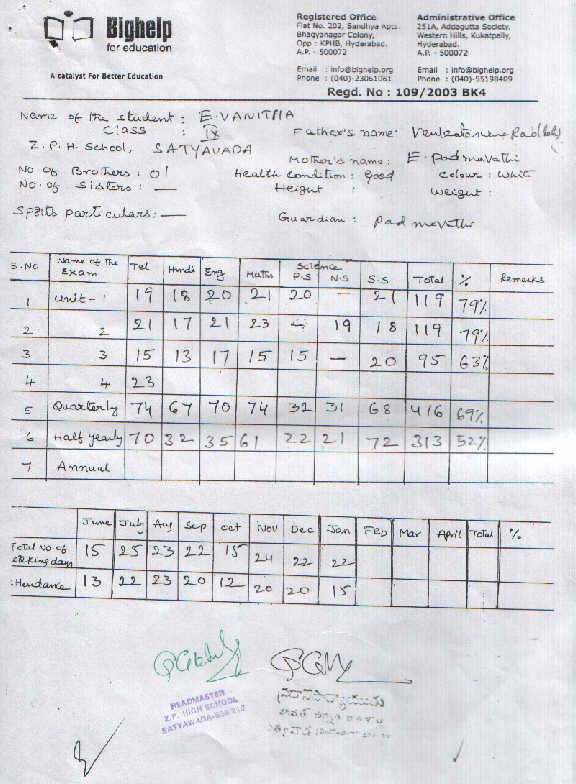 Bighelp
for education
A catalyst For Better Education
Registered Office
Flat No. 202, Sandhya Apts.
Bhagyanagar Colony,
Opp : KPHB, Hyderabad.
A.P. - 500072
Email : info@bighelp.org
Phone : (040)-23061061
Administrative Office
251A, Addagutta Society,
Western Hills, Kukatpally,
Hyderabad.
A.P. - 500072
Email : info@bighelp.org
Phone : (040)-55198409
Regd. No : 109/2003 BK4
Name of the student : E. VANITHA
Class : IX
Father's name:
Z.P.H. School, SATYAVADA
Mother's name: E. Padmavathi
No of Brothers : 01 Health condition : Good Colour : White
No. of Sisters : — Height : Weight :
Sports particulars: — Guardian : Padmavathi
S.NO Name of the Exam Tel Hindi Eng Maths Science P.S N.S S.S Total % Remarks
1 Unit- 1 19 18 20 21 20 - 21 119 79%
2 2 21 17 21 23 - 19 18 119 79%
3 3 15 13 17 15 15 - 20 95 63%
4 4 23
5 Quarterly 74 67 70 74 32 31 68 416 69%
6 Half yearly 70 32 35 61 22 21 72 313 52%
7 Annual
June July Aug Sep Oct Nov Dec Jan Feb Mar April Total %
Total No of working days 15 25 23 22 15 24 22 22
Attendance 13 22 23 20 12 20 20 15
HEADMASTER
Z.P. HIGH SCHOOL